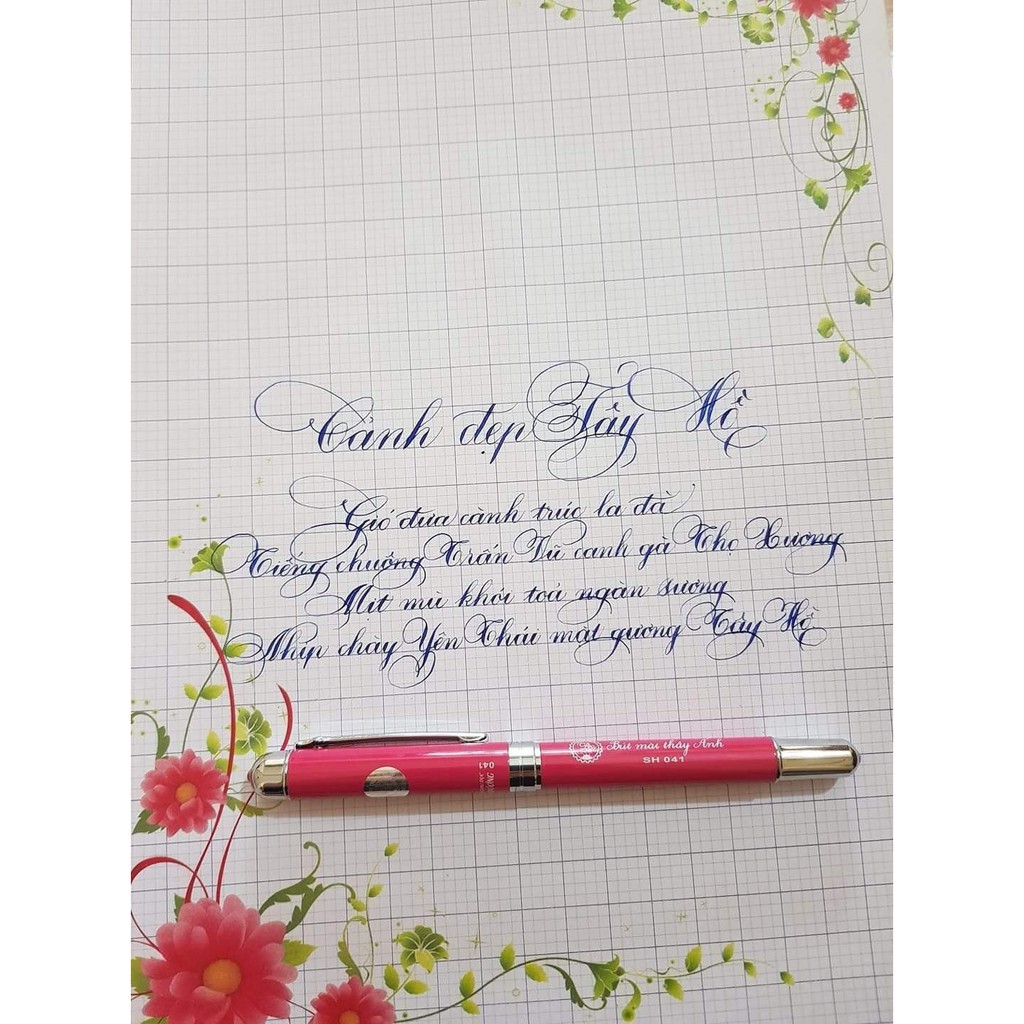 Cảnh đẹp Tây Hồ
Gió đưa cành trúc la đà
Tiếng chuông Trấn Vũ canh gà Thọ Xương
Mịt mù khói toả ngàn sương
Nhịp chày Yên Thái mặt gương Tây Hồ
Bút mài thầy Ánh
SH 041
041